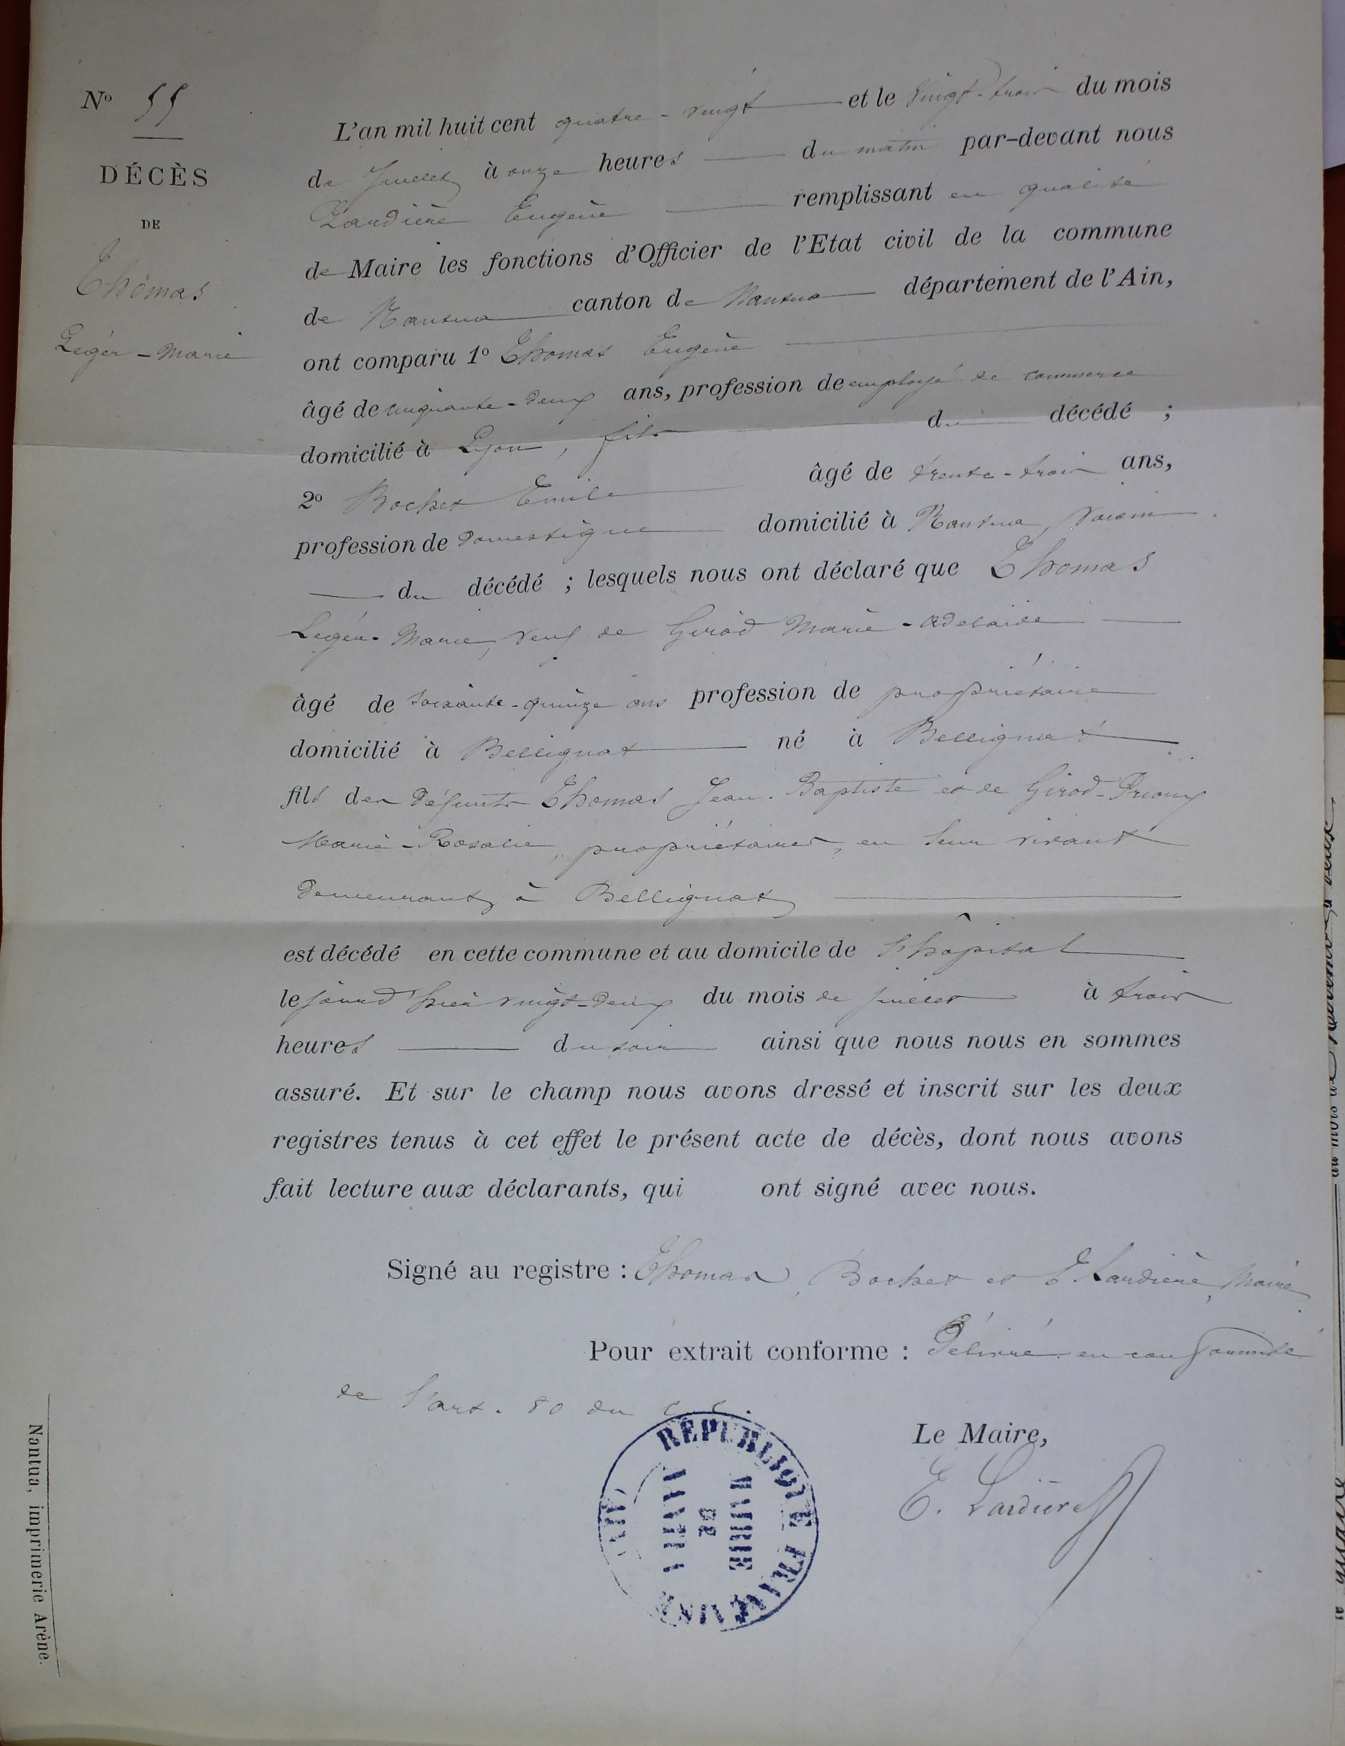 N° 55
DÉCÈS
DE
Thomas
Léger-Marie
L'an mil huit cent quatre-vingt et le vingt-trois du mois
de Juillet à onze heures du matin par-devant nous
Lardière Eugène remplissant en qualité
de Maire les fonctions d'Officier de l'Etat civil de la commune
de Nantua canton de Nantua département de l'Ain,
ont comparu 1° Thomas Eugène
âgé de cinquante-deux ans, profession de employé de commerce
domicilié à Lyon, fils du décédé ;
2° Bochet Emile âgé de trente-trois ans,
profession de domestique domicilié à Nantua, voisin
du décédé ; lesquels nous ont déclaré que Thomas
Léger-Marie, veuf de Girod Marie-Adélaïde
âgé de soixante-quinze ans profession de propriétaire
domicilié à Bellignat né à Bellignat
fils des défunts Thomas Jean-Baptiste et de Girod-
Marie-Rosalie, propriétaires, en leur vivant
demeurant à Bellignat
est décédé en cette commune et au domicile de l'hôpital
le jourd'hier vingt-deux du mois de juillet à trois
heures du soir ainsi que nous nous en sommes
assuré. Et sur le champ nous avons dressé et inscrit sur les deux
registres tenus à cet effet le présent acte de décès, dont nous avons
fait lecture aux déclarants, qui ont signé avec nous.
Signé au registre : Thomas, Bochet et E. Lardière, Maire
Pour extrait conforme : Délivré en conformité
de l'art. 80 du C. C.
Le Maire,
E. Lardière
RÉPUBLIQUE FRANÇAISE
MAIRIE
DE
NANTUA
Nantua, imprimerie Arène.